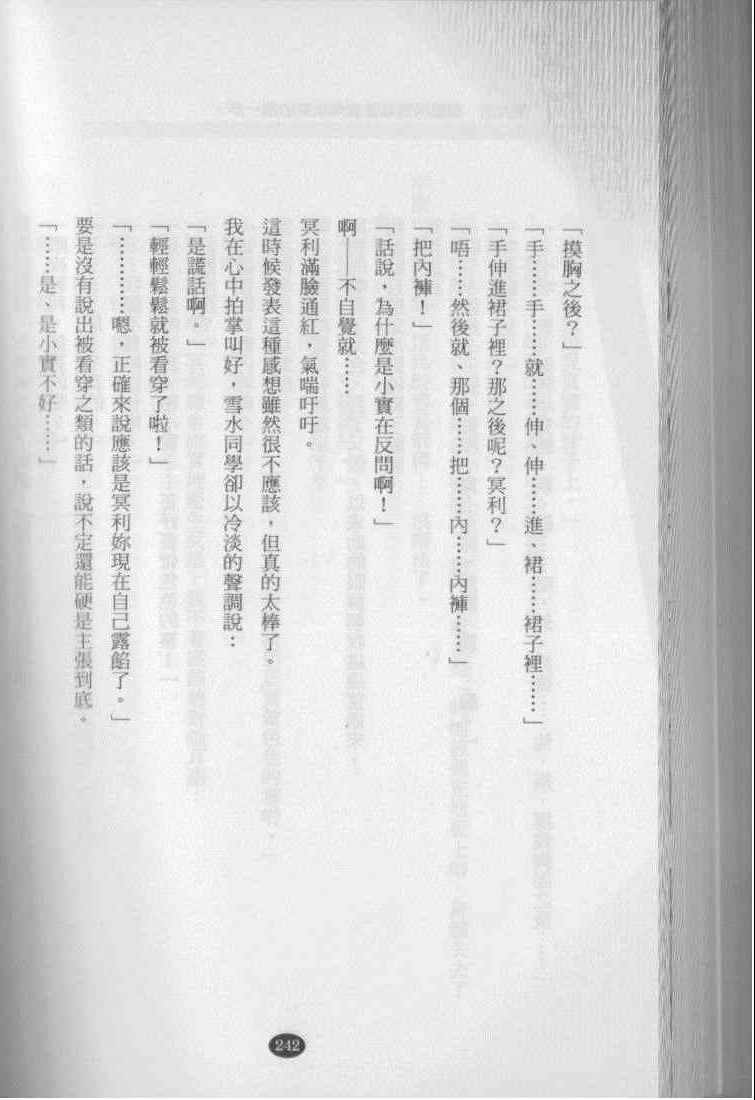 「摸胸之後？」
「手……手……就……伸、伸……進、裙……裙子裡……」
「手伸進裙子裡？那之後呢？冥利？」
「唔……然後就、那個……把……內……內褲……」
「把內褲！」
「話說，為什麼是小實在反問啊！」
啊——不自覺就……
冥利滿臉通紅，氣喘吁吁。
這時候發表這種感想雖然很不應該，但真的太棒了。
我在心中拍掌叫好，雪水同學卻以冷淡的聲調說：
「是謊話啊。」
「輕輕鬆鬆就被看穿了啦！」
「…………嗯，正確來說應該是冥利妳現在自己露餡了。」
要是沒有說出被看穿之類的話，說不定還能硬是主張到底。
「……是、是小實不好……」
242